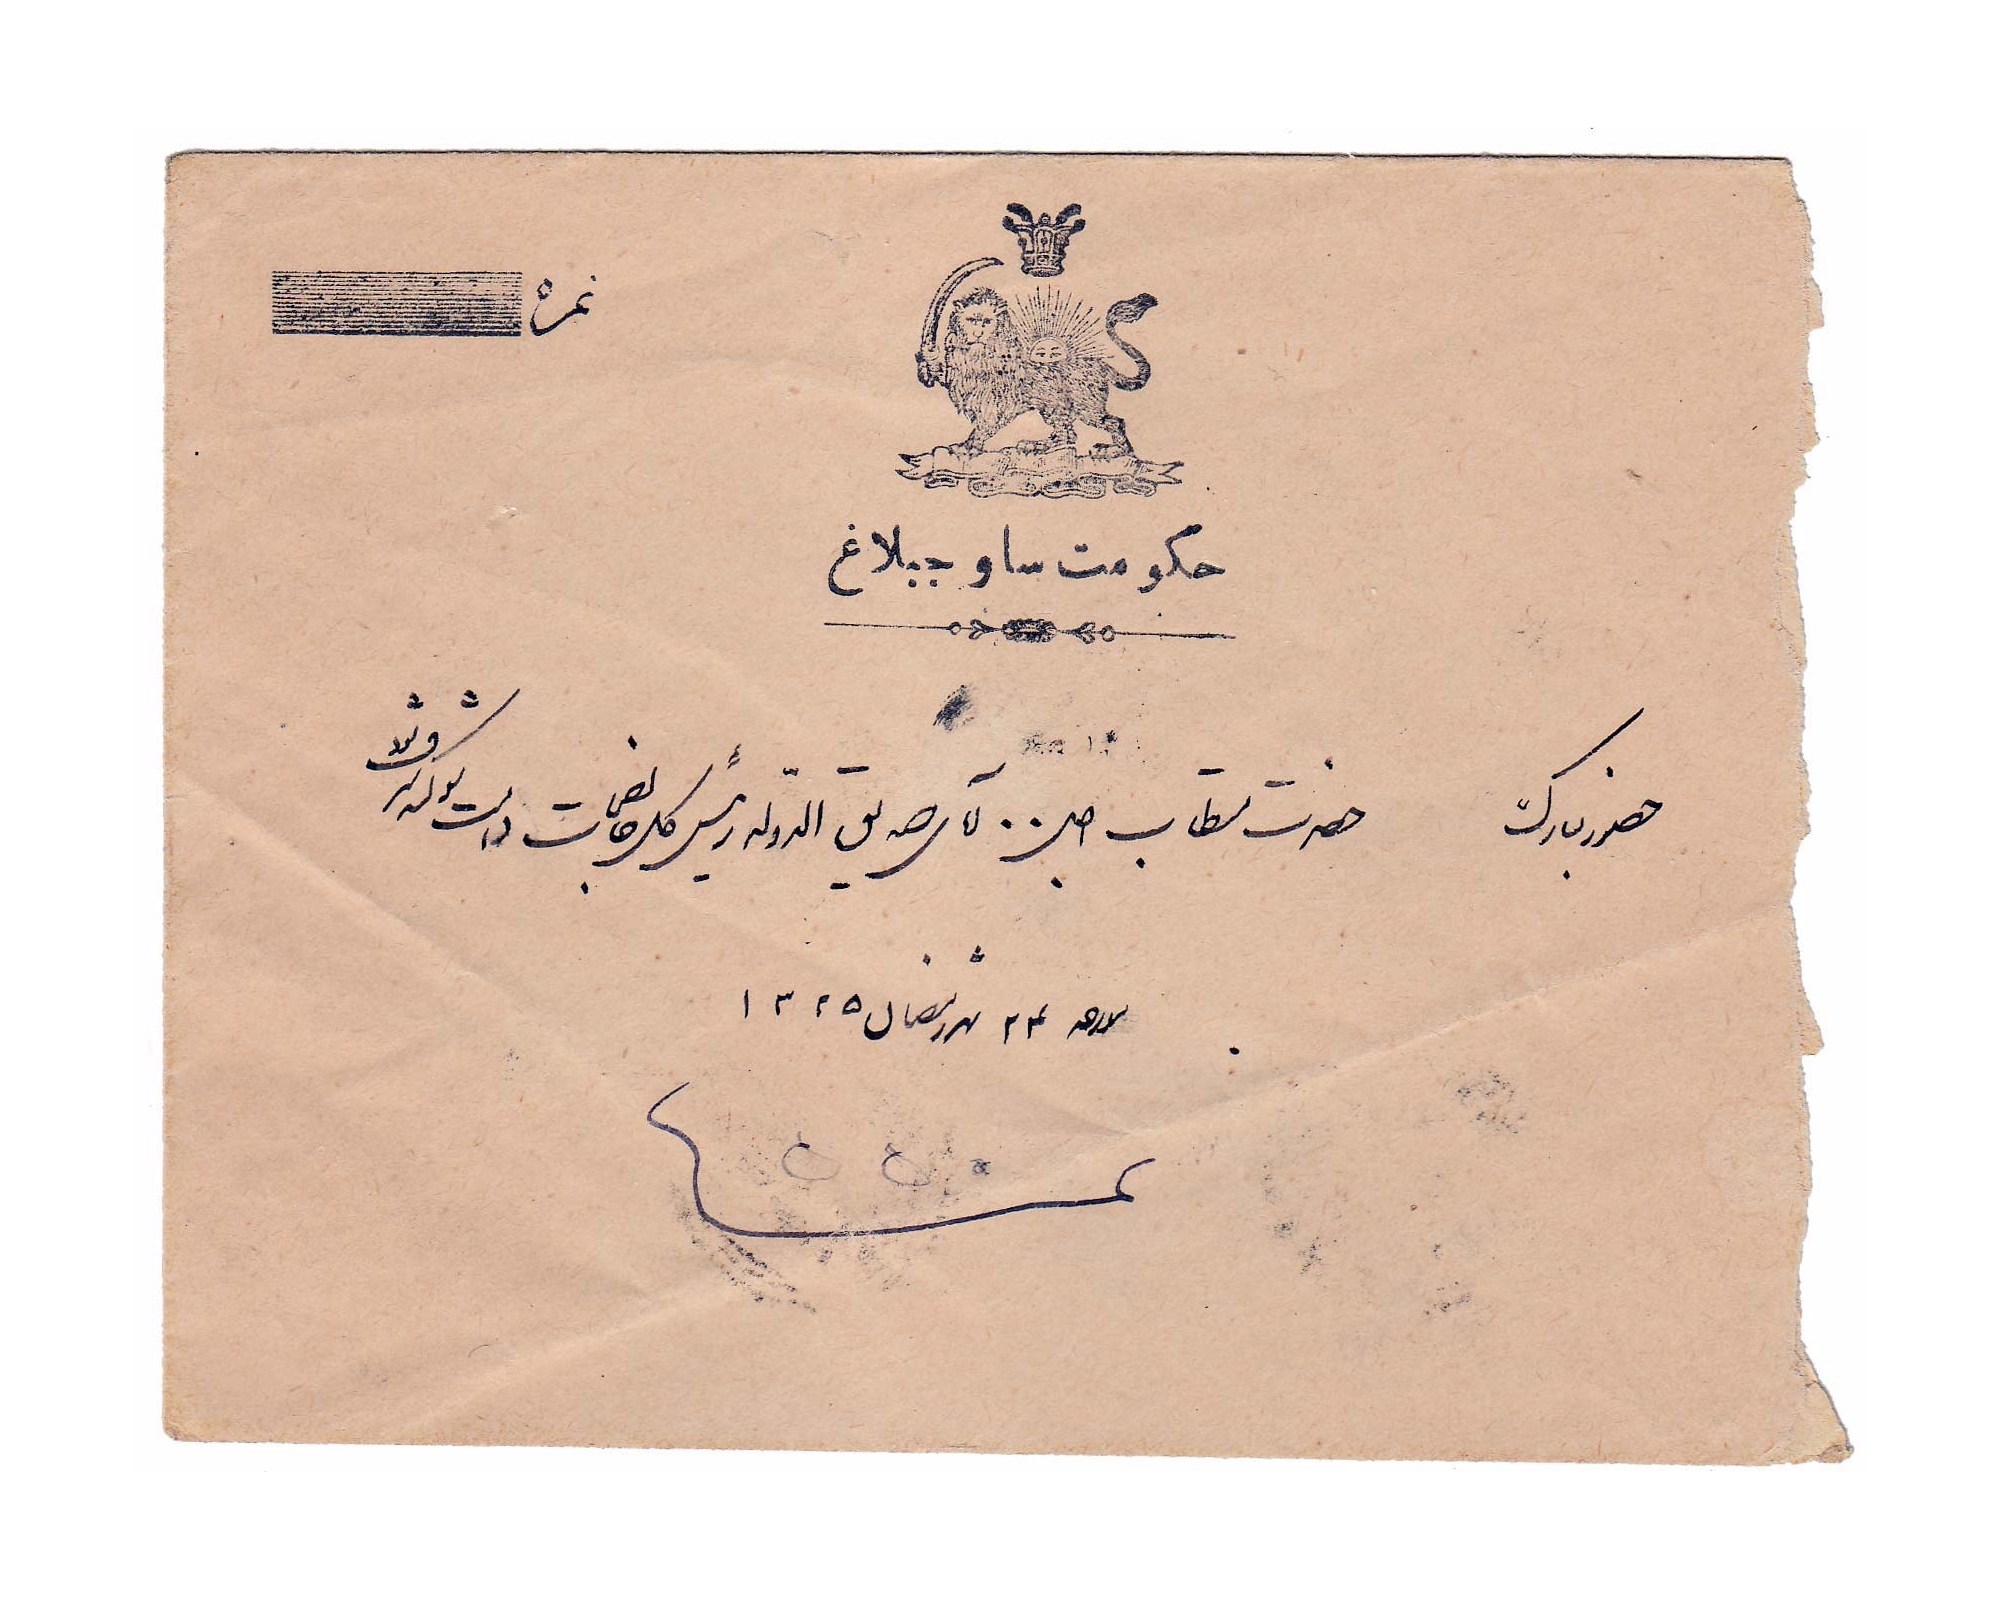 نمره
حکومت ساوجبلاغ
حضور مبارک حضرت مستطاب اجل آقای صدیق الدوله رئیس کل خالصجات دامت شوکته مشرف شود
مورخه ۲۴ شهر رمضان ۱۳۲۵